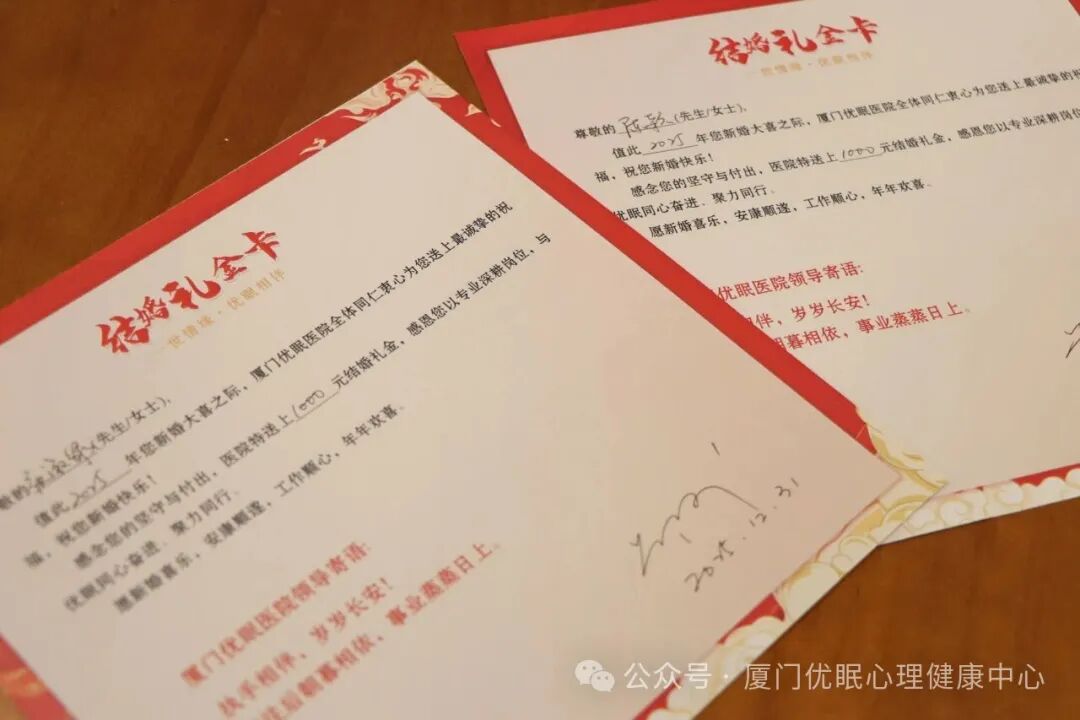 结婚礼金卡
一世情缘·优眠相伴
(先生/女士),
值此 2025 年您新婚大喜之际，厦门优眠医院全体同仁衷心为您送上最诚挚的祝
福，祝您新婚快乐！
感念您的坚守与付出，医院特送上 1000 元结婚礼金，感恩您以专业深耕岗位，与
优眠同心奋进、聚力同行。
愿新婚喜乐，安康顺遂，工作顺心，年年欢喜。
厦门优眠医院领导寄语:
扶手相伴，岁岁长安！
往后朝暮相依，事业蒸蒸日上。
2025.12.31
结婚礼金卡
世情缘·优眠相伴
尊敬的 (先生/女士),
值此 2025 年您新婚大喜之际，厦门优眠医院全体同仁衷心为您送上最诚挚的祝
福，祝您新婚快乐！
感念您的坚守与付出，医院特送上 1000 元结婚礼金，感恩您以专业深耕岗位
优眠同心奋进、聚力同行。
愿新婚喜乐，安康顺遂，工作顺心，年年欢喜。
优眠医院领导寄语:
相伴，岁岁长安！
朝暮相依，事业蒸蒸日上。
公众号·厦门优眠心理健康中心